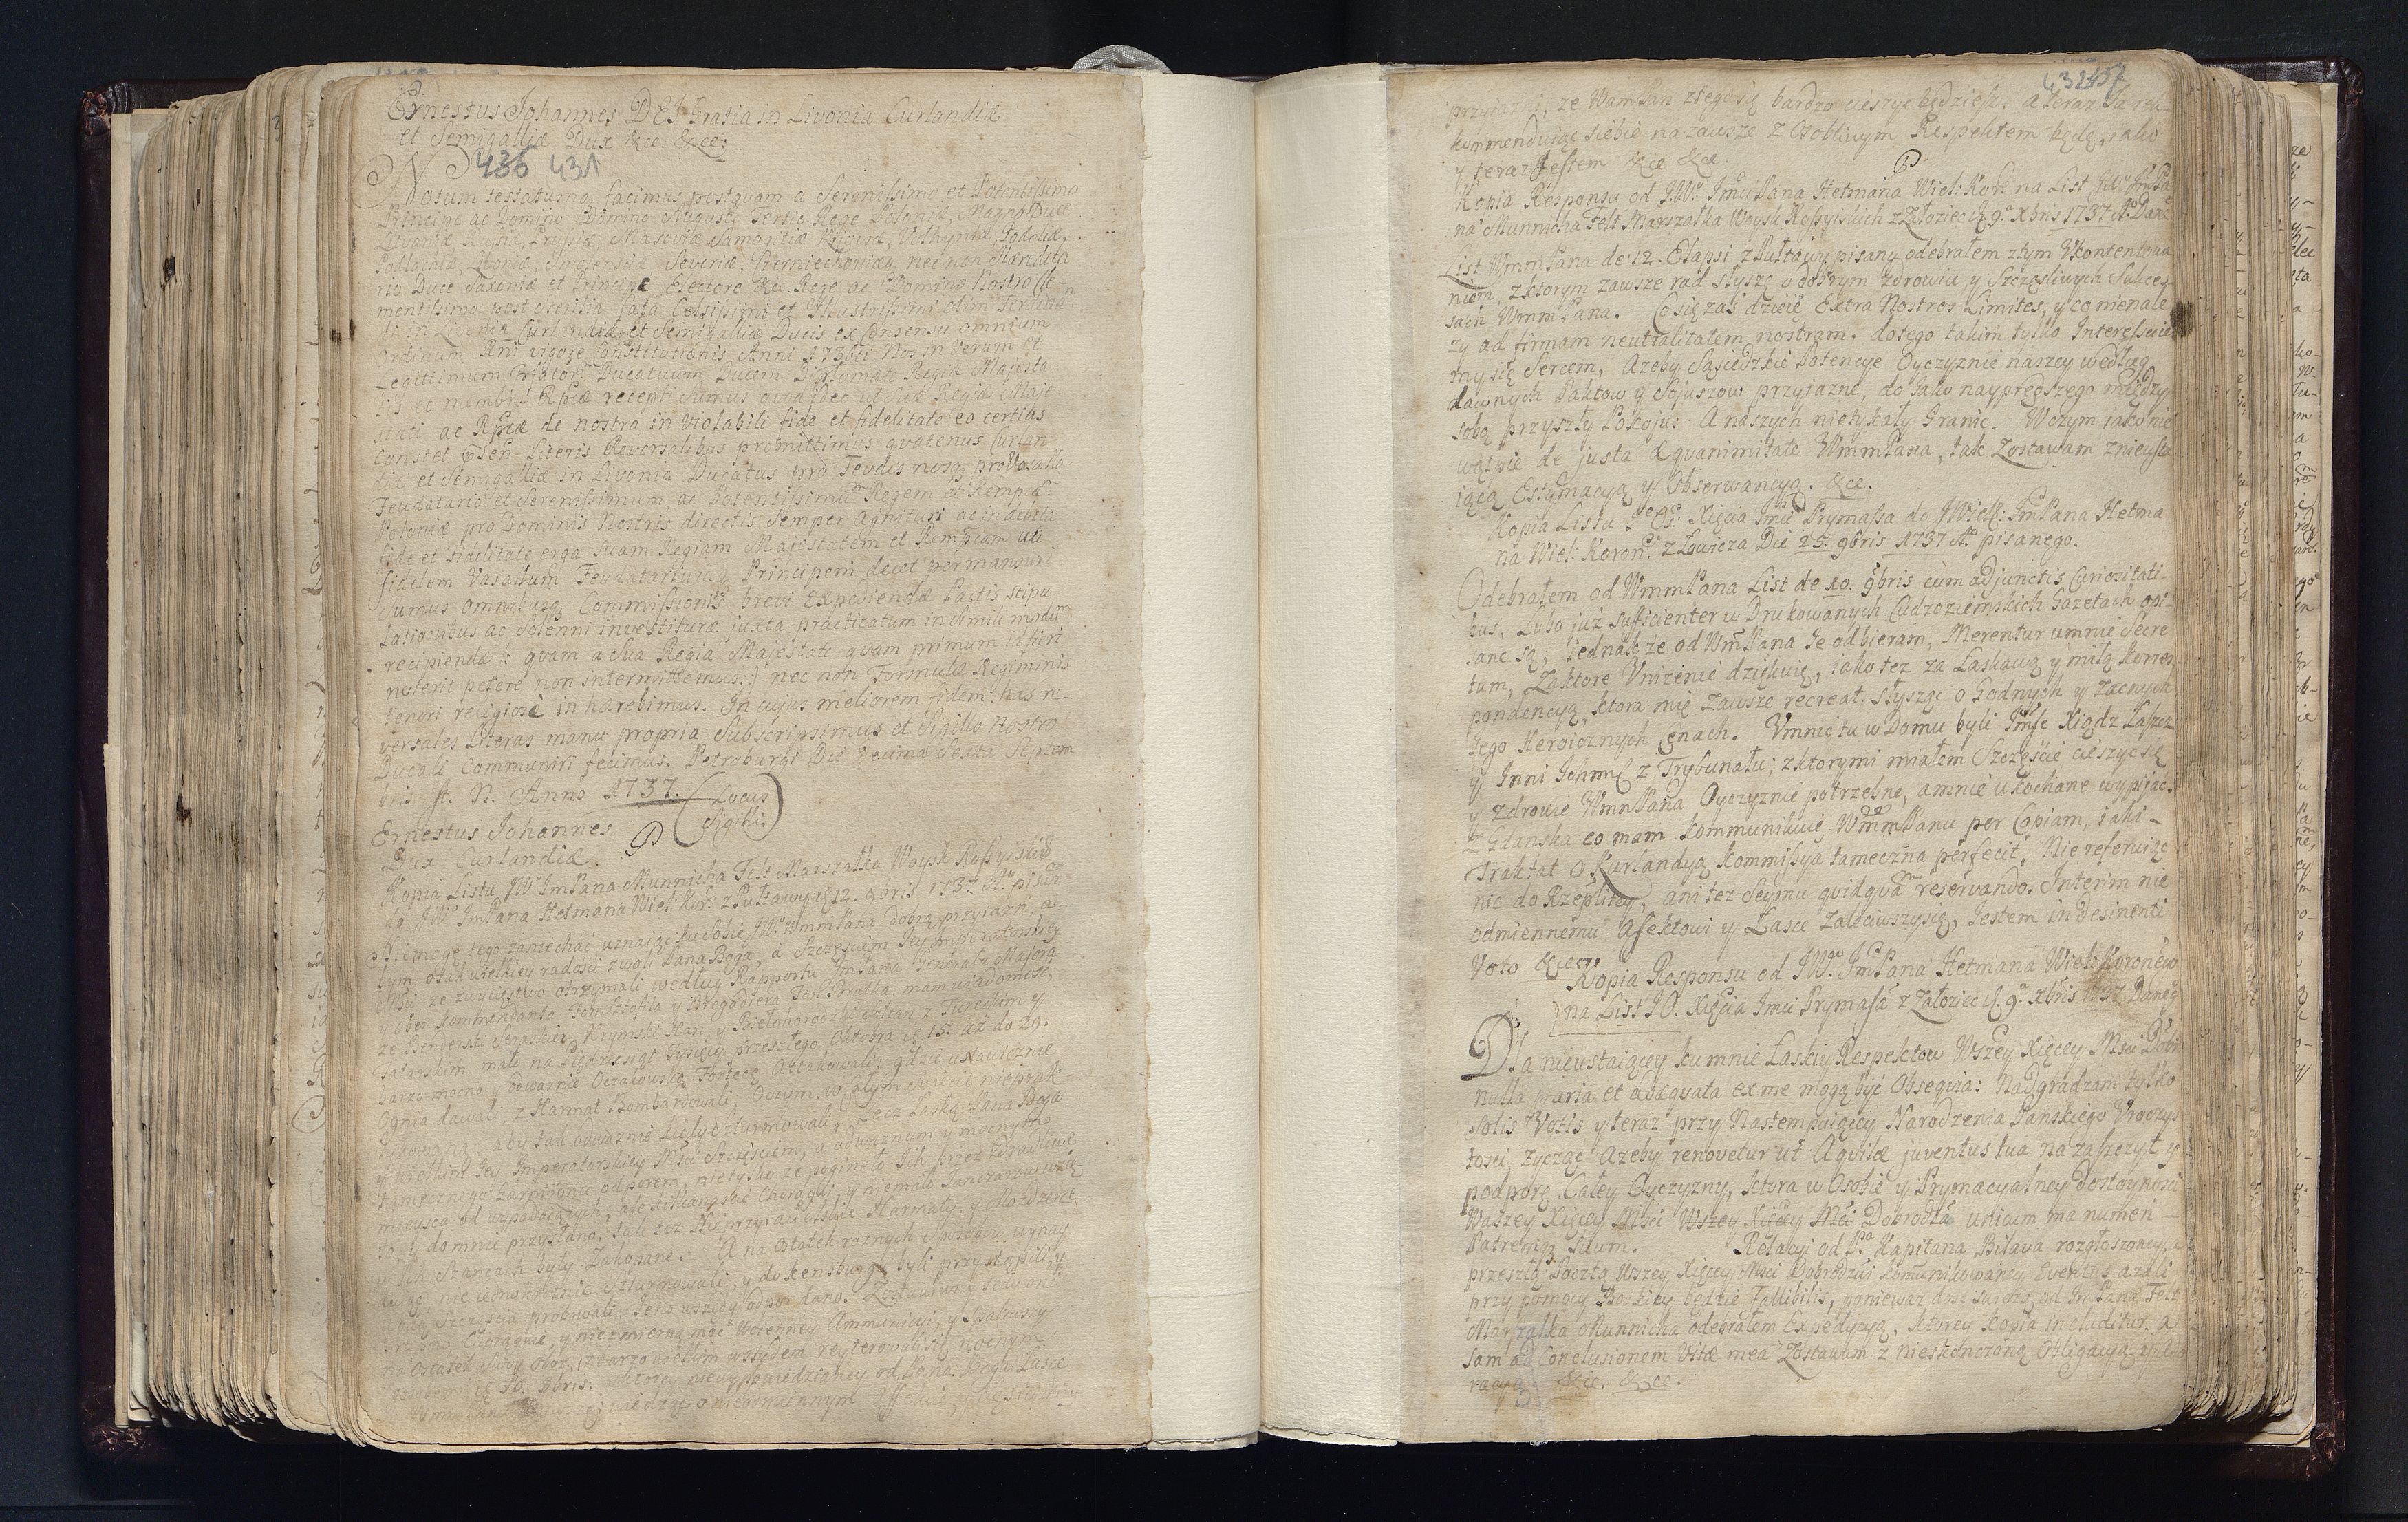 Ernestus Johannes DEI Gratia in Livonia Curlandiæ
et Semigalliæ Dux &ce. &ce.
436 431
Notum testatumq facimus, postquam a Serenissimo et Potentissimo
Principe ac Domino Domino Augusto Tertio Rege Poloniæ, Magno Duce
Litvaniæ, Russiæ, Prussiæ, Masoviæ, Samogitiæ, Kijoviæ, Volhyniæ, Podoliæ,
Podlachiæ, Livoniæ, Smolensciæ, Severiæ, Czerniechoviæq nec non Hæredita
rio Duce Saxoniæ et Principe Electore &c. Rege ac Domino Nostro Cle
mentissimo post sterilia fata Celsissimi et Illustrissimi olim Ferdinan
di in Livonia Curlandiæ et Semigalliæ Ducis ex Consensu omnium
Ordinum Rni vigore Constitutionis Anni 1736ti Nos in Verum et
Legittimum Ducatuum Ducem Diplomate Regiæ Majesta
tis et recepti Sumus qvod ideo ut Suæ Regiæ Maje
stati ac Rpcæ de nostra in violabili fide et fidelitate eo certius
Constet Literis Reversalibus promittimus qvatenus Curlan
diæ et Semigalliæ in Livonia Ducatus pro Feudis nosq pro Vasallo
Feudatario et Serenissimum ac Potentissimum Regem et Rempcam
Poloniæ pro Dominis Nostris directis Semper Agnituri ac in debita
fide et Fidelitate erga Suam Regiam Majestatem et Rempcam uti
fidelem Vasallum Feudatariumq Principem decet permansuri
Sumus omnibusq Commissionis brevi Expediendæ Pactis Stipu
lationibus ac Solenni investituræ juxta practicatum in Simili modum
recipiendæ /: qvam a Sua Regia Majestate qvam primum id fieri
poterit petere non intermittemus :/ nec non Formulæ Regiminis
tenori religiosè in hærebimus. In cujus meliorem fidem has re-
versales Literas manu propria Subscripsimus et Sigillo Nostro
Ducali Communiri fecimus. Petroburgi Die Decima Sexta Septem
bris st. N. Anno 1737. (Locus
Ernestus Johannes Sigilli)
Dux Curlandiæ.
Kopia Listu JWo ImPana Munnicha Felt Marszałka Woysk Rossyiskich
do JWo ImPana Hetmana Wiel: Kor: z Pułtawy d. 12. 9bris 1737. Ao pisan
Niemogę tego zaniechać uznaiąc ku Sobie JWo WmmPana dobrą przyiaźń, a-
bym otak wielkiey radości z woli Pana Boga, à Szczęściem Jey Imperatorskiey
Mści, że zwycięstwo otrzymali według Rapportu ImPana Generała Majora
y Ober Kommendanta Fon Sztofila y Bregadiera Fon Bratka, mam wiadomość,
że Benderski Seraskier, Krymski Han, y Białohorodzki Sołtan z Tureckim y
Tatarskim mało na Pięćdziesiąt Tysięcy przeszłego Oktobra d. 15. aż do 29.
barzo mocno y odważnie Oczakowską Fortecę Attakowali: gdzie ustawicznie
Ognia dawali, z Harmat Bombardowali Oczym w całym Świecie nieprak-
tykowano, aby tak odważnie kiedy szturmowali, Lecz Łaską Pana Boga
y wielkim Jey Imperatorskiey Mści Szczęściem, a odważnym y mocnym
tamecznego Garnizonu odporem, nietylko że poginęło Ich przez zdradliwe
mieysca od wypadaiących, ale kilkanaście Chorągwi, y niemało Janczarow wzię
to, y do mnie przysłano, tak też Nieprzyiacielskie Harmaty y Mozdzerze
w Ich Szancach były Zakopane. A na ostatek roznych Sposobow wynay
duiąc, nie iednokrotnie Szturmowali, y do kensburg byli przystąpili, y
swoią Szczęścia probowali, Jeno wszędy odpor dano. Zostawiwszy tedy oni
Trupow, Chorągwie, y niezmierną moc Woienney Ammunicyi, y Spaliwszy
na ostatek swoy oboz, z barzo wielkim wstydem reyterowali się nocnym
sposobem d. 30. 8bris. Ktorey niewypowiedzianey od Pana Boga Łasce
WmmPana wiedząc o nieodmiennym Affekcie, y Sąsiedzkiey
432 437
przyiaźni, że WamPan z tego się bardzo cieszyć będziesz. A teraz Ja rek-
kommenduiąc siebie na zawsze z Osobliwym Respektem będę, iako
y teraz Jestem &ce &ce.
Kopia Responsu od JWo ImciPana Hetmana Wiel: Kor: na List JWo ImPa
na Munnicha Felt Marszałka Woysk Rossyiskich z Załoziec d. 9a Xbris 1737. Ao Dane
List WmmPana de 12. Elapsi z Pułtawy pisany odebrałem z tym Vkontentowa
niem, z ktorym zawsze rad słyszę o dobrym zdrowiu, y Szczęśliwych Sukces-
sach WmmPana. Co się zaś dzieie Extra Nostros Limites, y co nienale
ży ad firmam neutralitatem nostram, do tego takim tylko Interessuie
my się Sercem, Ażeby Sąsiedzkie Potencye Oyczyznie naszey według
dawnych Paktow y Sojuszow przyiazne, do iako nayprędszego między
sobą przyszły Pokoju: A naszych nietykały Granic. Wczym iako nie
wątpię de justa æqvanimitate WmmPana, tak Zostawam z nieusta
iącą Estymacyą y Obserwancyą. &ce.
Kopia Listu Xięcia Jmci Prymassa do JWielk: ImPana Hetma
na Wiel: Koron: z Łowicza Die 25. 9bris 1737 Ao pisanego.
Odebrałem od WmmPana List de 10. 9bris cùm adjunctis Curiositati-
bus, Lubo już sufficienter w Drukowanych Cudzoziemskich Gazetach opi-
sane są, iednak że od WmPana Je odbieram, Merentur umnie Secre
tum, Zaktore Vniżenie dziękuię, iako tez za Łaskawą y miłą Korres-
pondencyą, ktora mię Zawsze recreat, słysząc o Godnych y Zacnych
Jego Heroicznych Cnach. Vmnie tu w Domu byli Jmść Xiądz Łaszcz
y Inni Ichmć z Trybunału; z ktorymi miałem Szczęście cieszyć się
y Zdrowie WmmPana Oyczyznie potrzebne, amnie ukochane wypijać.
Z Gdańska co mam kommunikuię WmmPanu per Copiam, iaki-
Traktat o Kurlandyą Kommissya tameczna perfecit, Nie referuiąc
nic do Rzeplitey, ani tez Seymu qvidqvam reservando. Interim nie
odmiennemu Afektowi y Łasce Zaleciwszysię, Jestem in desinenti
Voto &ce.
Kopia Responsu od JWo ImPana Hetmana Wiel: Koronneo
na List JO. Xięcia Jmci Prymasa z Załoziec d. 9a Xbris 1737. Daneg
Dla nieustaiącey ku mnie Łaski y Respektow Wszey Xięcey Mści Dobr
nulla paria et adæqvata ex me mogą być Obseqvia: Nadgradzam tylko
Solis Votis y teraz przy Nastempuiącey Narodzenia Panskiego Vroczys
tości, życząc Azeby renovetur ut Aqvilæ juventus tua na zaszczyt y
podporę Całey Oyczyzny, ktora w Osobie y Prymacyalney dostoyności
Waszey Xięcey Mści Wszey Xięcey Mści Dobrodźa unicum ma numen
Patremq suum. Relacyi od Pa Kapitana Bilava rozgłoszoney, a
przeszłą Pocztą Wszey Xięcey Mści Dobrodzei komunikowaney Eventus azali
przy pomocy Boskiey będzie fallibilis, poniewaz dość od ImPana Felt
Marszałka Munnicha odebrałem Expedycyą, ktorey Kopia includitur. a
sam ad Conclusionem Vitæ meæ Zostawam z nieskończoną Obligacyą y
racyą &ce. &ce.